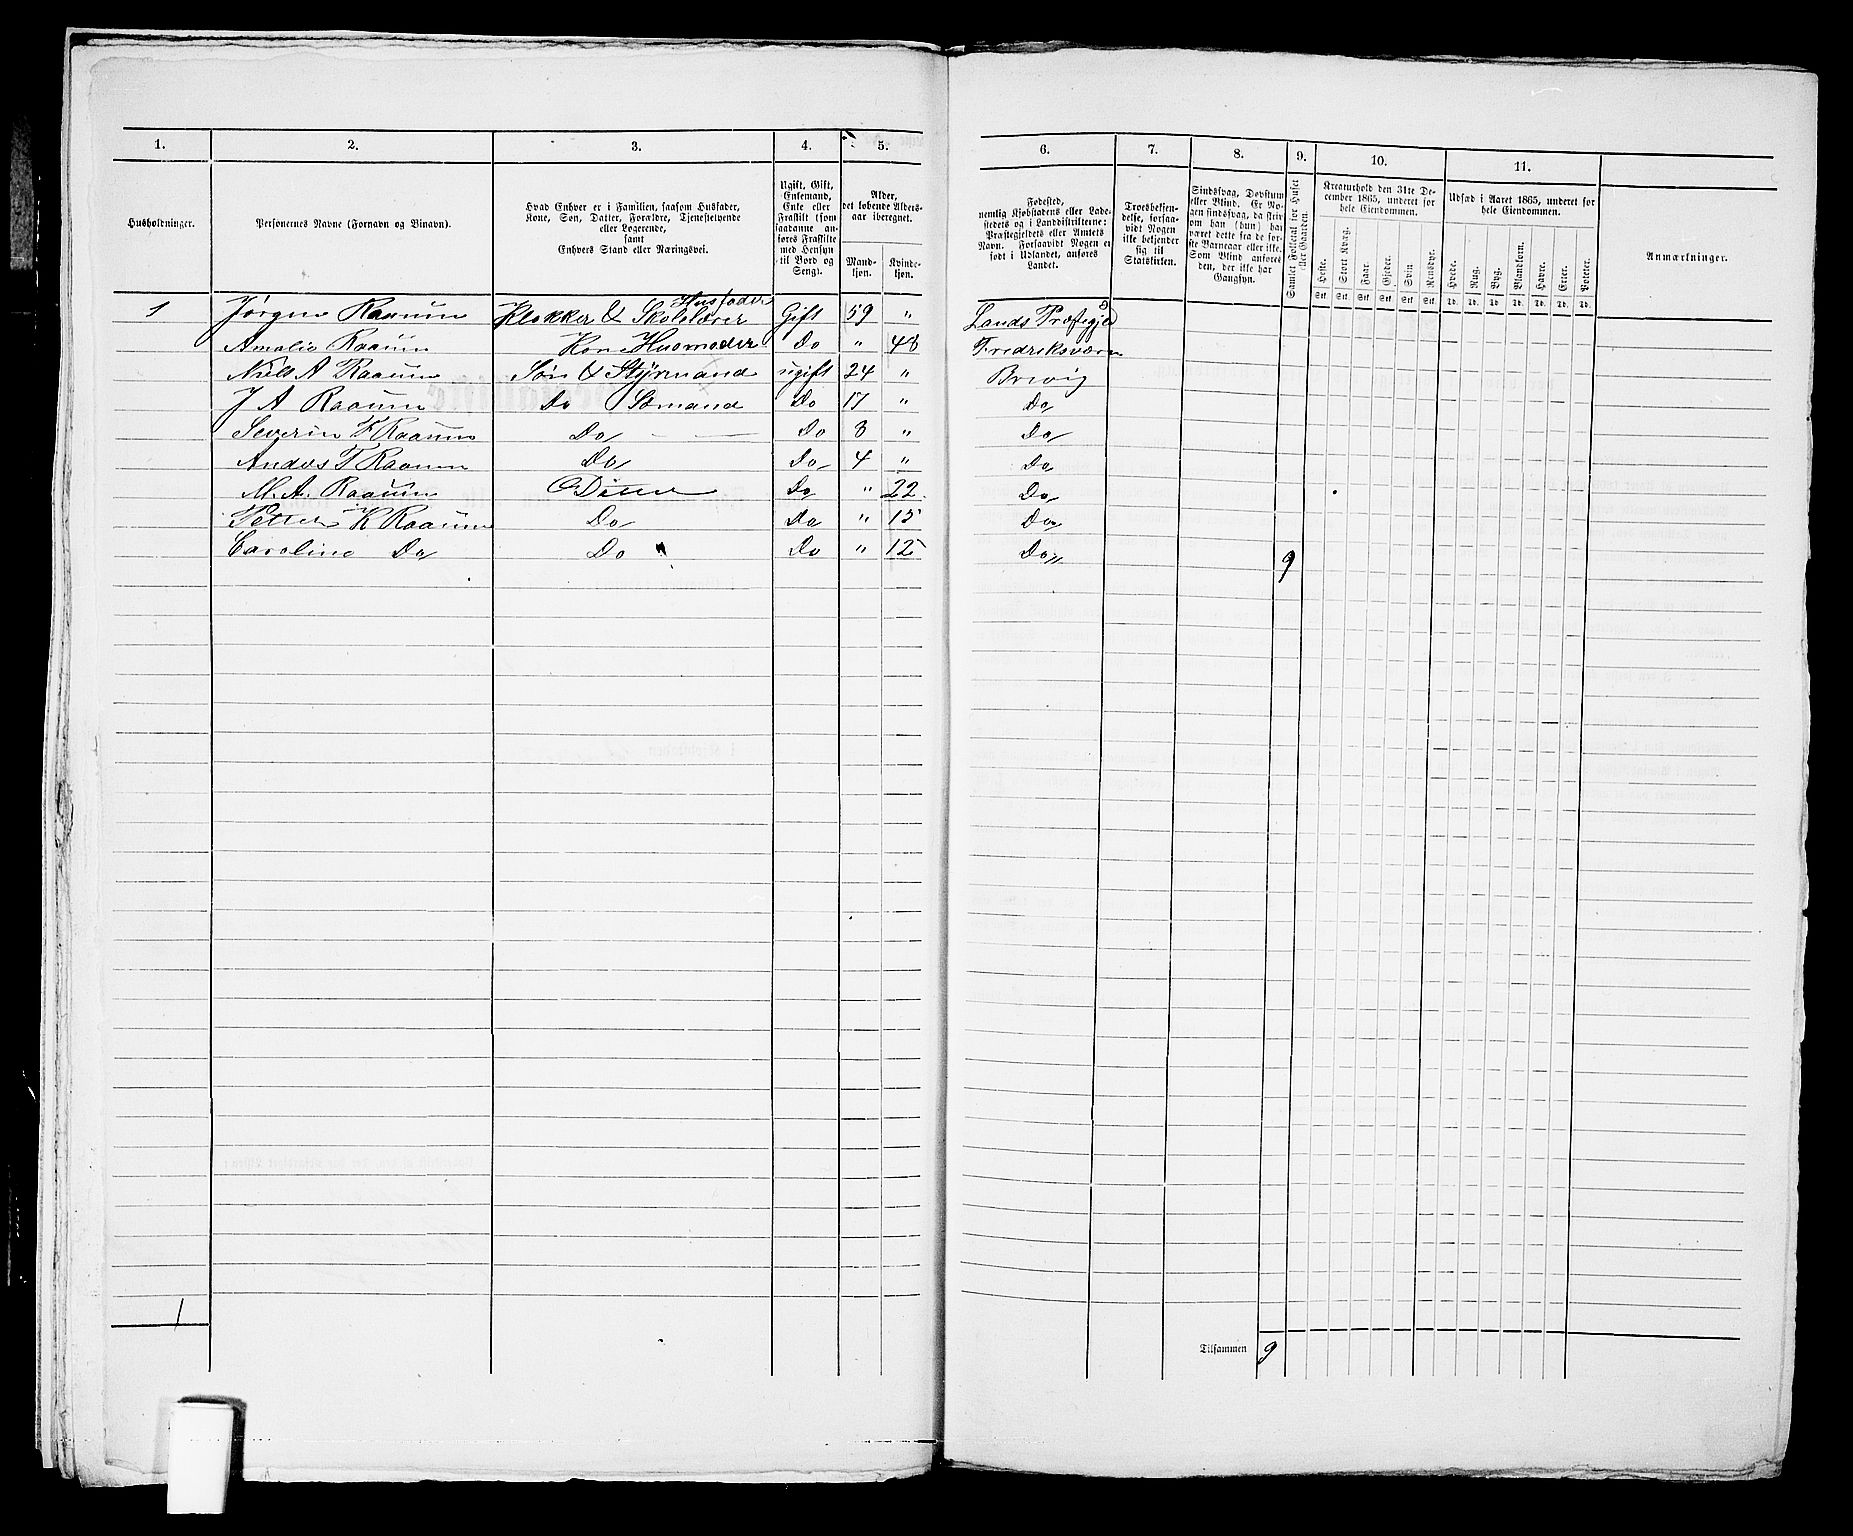 1. 2. 3. 4. 5. 6. 7. 8. 9. 10. 11.
Husholdninger.
Personernes Navne (Fornavn og Binavn).
Hvad Enhver er i Familien, saasom Husfader,
Kone, Søn, Datter, Forældre, Tjenestetyende
eller Logerende,
samt
Enhvers Stand eller Næringsvei.
Ugift, Gift,
Enkemand,
Enke eller
Fraskilt (som
saadanne an-
føres Fraskilte
med Hensyn
til Bord og
Seng).
Alder,
det løbende Alders-
aar iberegnet.
Mand-
kjøn.
Kvinde-
kjøn.
Fødested,
nemlig Kjøbstadens eller Lade-
stedets og i Landdistrikterne:
Præstegjeldets eller Amtets
Navn. Forsaavidt Nogen er
født i Udlandet, anføres
Landet.
Troesbekjen-
delse, forsaa-
vidt Nogen
ikke bekjender
sig til
Statskirken.
Sindssvag, Døvstum
eller Blind. Er No-
gen sindssvag, da skriv
om han (hun) har
været dette fra de før-
ste Barneaar eller ikke.
Som Blind anføres
den, der ikke har
Gangsyn.
Samlet Folketal for Huset
eller Gaarden.
Kreaturhold den 31te De-
cember 1865, underet for
hele Eiendommen.
Heste. Stort Kvæg. Faar. Gjeder. Svin. Rensdyr.
Stk. Stk. Stk. Stk. Stk. Stk.
Udsæd i Aaret 1865, underet for
hele Eiendommen.
Hvede. Rug. Byg. Blandkorn. Havre. Erter. Poteter.
Td. Td. Td. Td. Td. Td. Td.
Anmærkninger.
Husfader
1 Jørgen Raaum Klokker & Skolelærer Gift 59 " Lands Præstegjeld
Amalie Raaum Kone Husmoder Do " 48 Fredriksværn
Niels A Raaum Søn & Styrmand ugift 24 " Brevig
J A Raaum Do Sømand Do 17 " Do
Severin K Raaum Do — — Do 8 " Do
Raaum Do Do 4 " Do
M. A. Raaum Datter Do " 22 Do
K Raaum Do Do " 15 Do
Caroline Do Do " Do " 12 Do " 9
1
Tilsammen 9